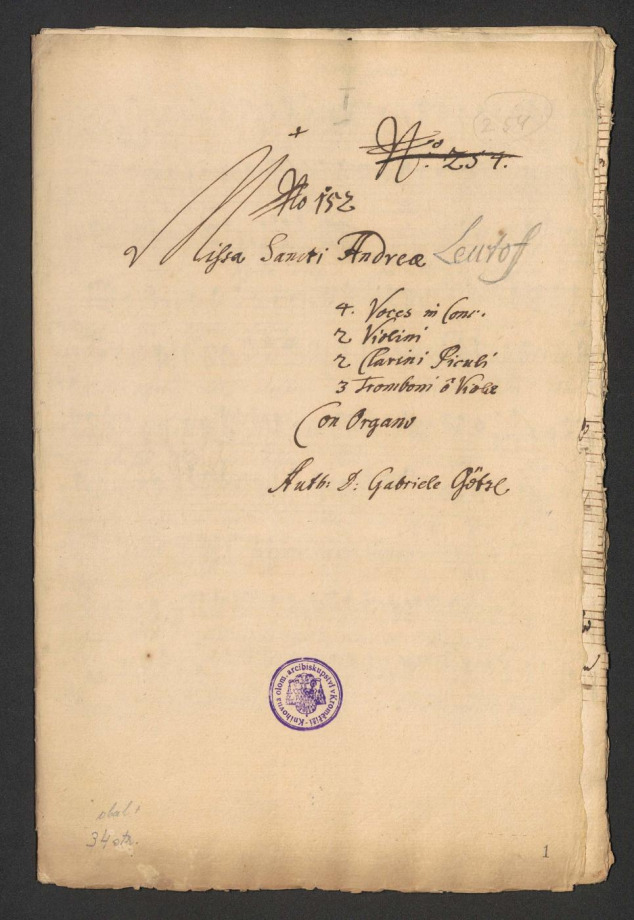 I
254
+
No: 254.
No 152
Missa Sancti Andreæ
4. Voces in Conc.
2 Violini
2 Clarini Piculi
3 Tromboni ô Violæ
Con Organo
Auth: D: Gabriele Götzl
Knihovna olom. arcibiskupství v Kroměříži
obal +
34 str.
1